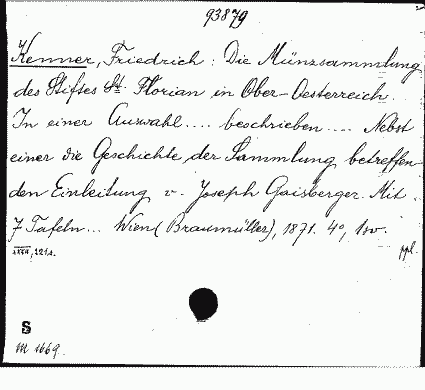 93879
Kenner, Friedrich: Die Münzsammlung
des Stiftes St. Florian in Ober-Oesterreich.
In einer Auswahl.... beschrieben.... Nebst
einer die Geschichte der Sammlung betreffen-
den Einleitung v. Joseph Gaisberger. Mit
7 Tafeln... Wien (Braumüller), 1871. 4°, 1 Bv.
221 s. ppl.
S
M 1669.